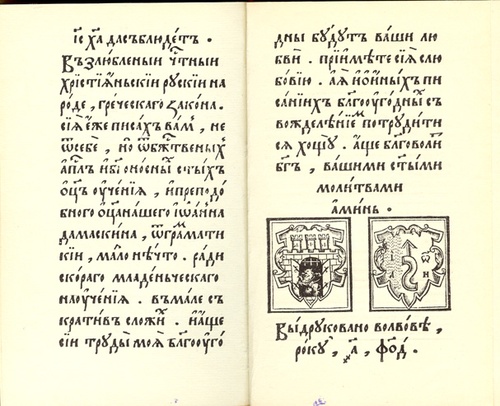 і҃с х҃а да съблюдет̾ .
Възлюбленыи чт҃ныи
хрїстїѧ́ньскїи рꙋскїи на
ро́де , гре́ческаго зако́на .
сїѧ҄ е҆́же писах̾ вам̾ , не
ѿсебе , но ѿбж҃твеных̾
а҆п҃лъ и҆бг҃ононыхъ ст҃ых̾
о҆ц҃ъ оу҆че́нїѧ , и҆препод́о
бного о҆ц҃а на́шего і҆ѡа҆́нна
дамаски́на , ѿгра́мати
кїи , ма́ло нѣ́что . ра́ди
ско́раго младе́ньческаго
наоуче́нїѧ . въма́ле съ
кратив̾ сложи́х̾ . и҆а҆́ще
сїи труды́ моѧ҄ бл҃гооуго́
дны бꙋ́дꙋт̾ ва́ши лю
бви́ . прїи҆мѣ́те сїѧ҄ слю
бо́вїю . а҆ѧ҄ и҆ои҆́ныхъ пи
са́нїихъ бл҃гооуго́дных̾ с̾
вожделѣ́нїем̾ потруди́ти
сѧ хощꙋ̀ . а҆́ще бл҃говоли́т̾
бг҃ъ , ва́шими ст҃ы́ми
моли́твами
а҆ми́нь .
і ѳ
ѡ н
Вы́друковано во́лвове ,
ро́кꙋ , ҂а҃ , ф҃о҃д҃ .